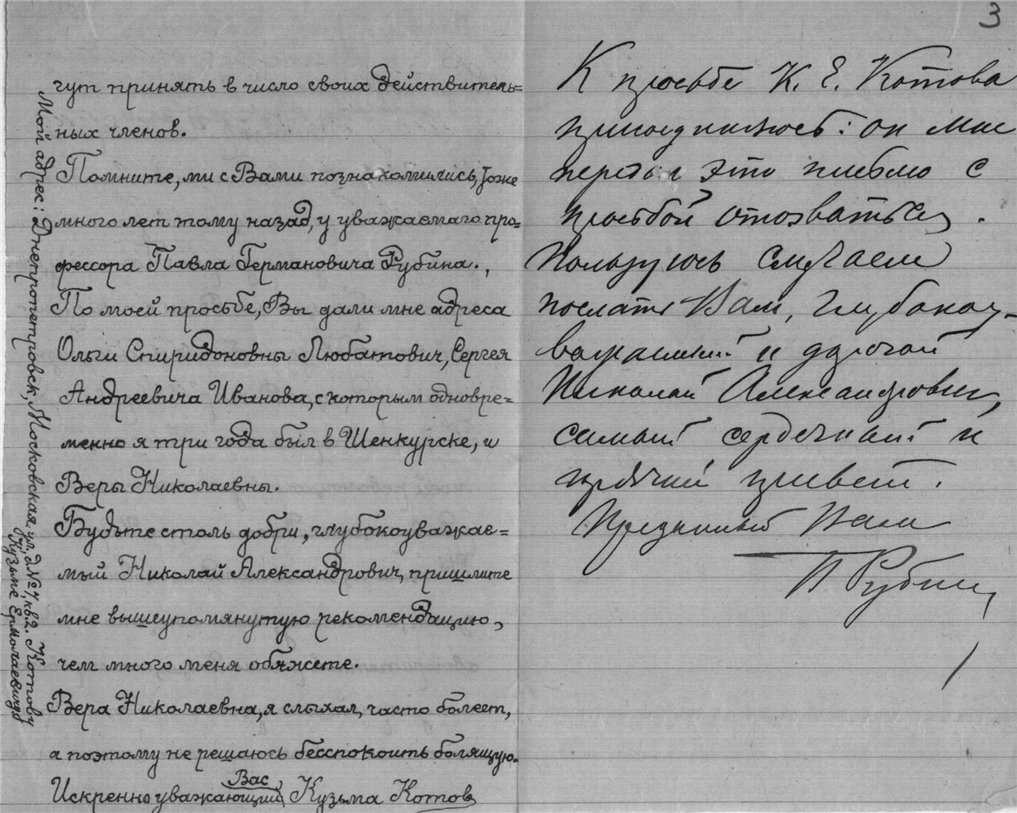 3
гут принять в число своих действитель=
ных членов.
Помните, ми с Вами познакомились, тоже
много лет тому назад, у уважаемаго про=
фессора Павла Германовича Рубина.,
По моей просьбе, Вы дали мне адреса
Ольги Спиридоновны Любатович, Сергея
Андреевича Иванова, с которым одновре=
менно я три года был в Шенкурске, и
Веры Николаевны.
Будьте столь добры, глубокоуважае=
мый Николай Александрович, пришлите
мне вышеупомянутую рекомендацию,
чем много меня обяжете.
Вера Николаевна, я слыхал, часто болеет,
а поэтому не решаюсь бесспокоить болящую.
Искренно уважающий Вас Кузьма Котов
Мой адрес: Днепропетровск, Московская ул, д. № 7, кв 2. Котову
Кузьме Ермолаевичу
К просьбе К. Е. Котова
присоединяюсь: он мне
передал это письмо с
просьбой отозваться.
Пользуюсь случаем
послать Вам, глубокоу-
важаемый и дорогой
Николай Александрович,
самый сердечный и
горячий привет.
Преданный Вам
П Рубин